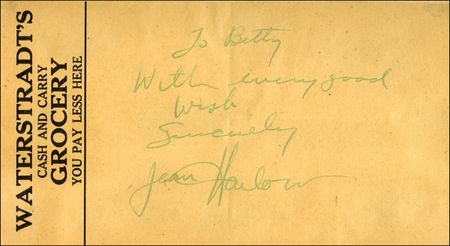 WATERSTRADT'S
CASH AND CARRY
GROCERY
YOU PAY LESS HERE
To Betty
With every good
Wish
Sincerely
Jean Harlow